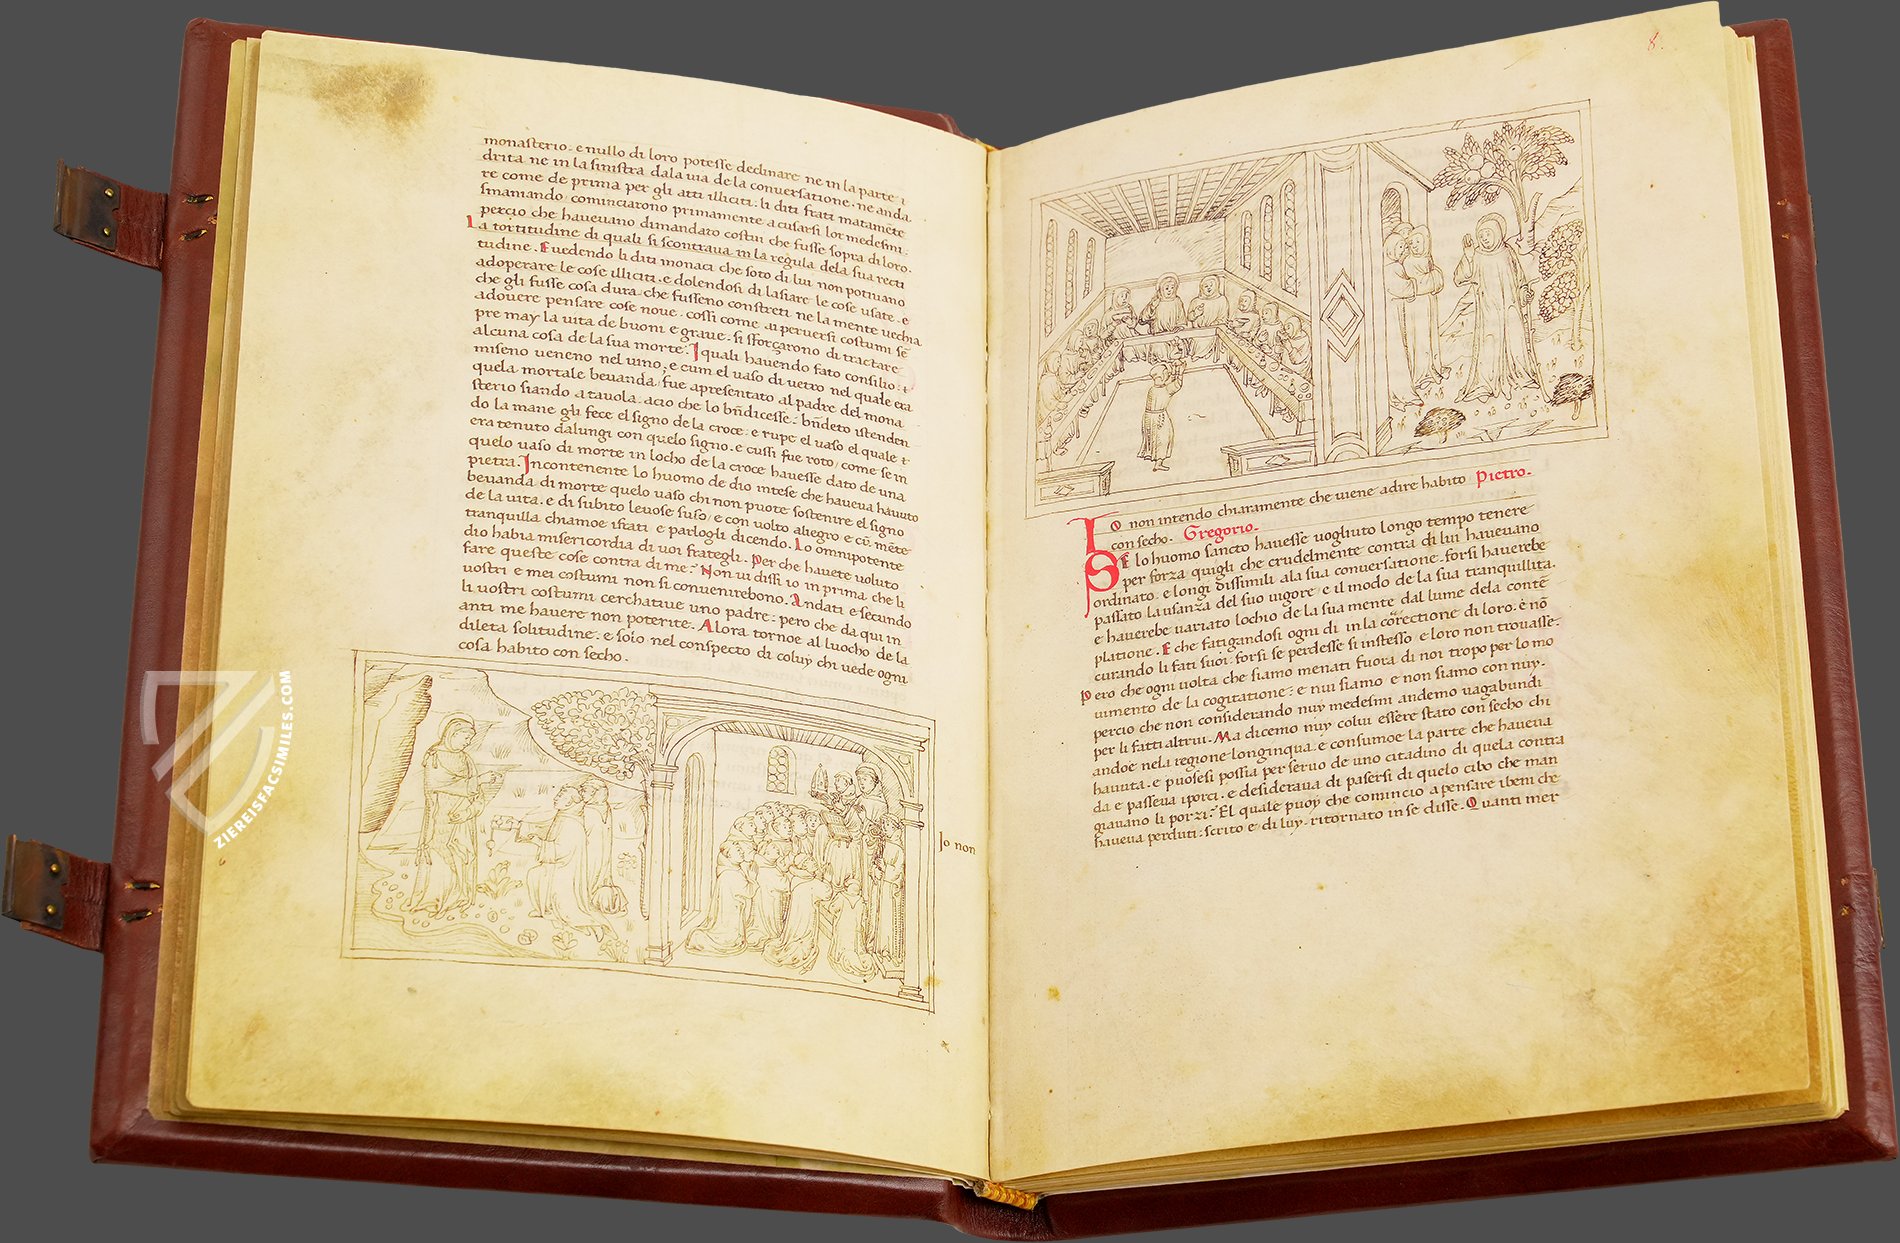 monasterio. e nullo di loro potesse declinare ne in la parte
drita ne in la sinistra dala uia de la conuersatione. ne anda
re come de prima per gli atti illiciti. li diti frati matamēte
smaniando cominciarono primamente a cusarsi lor medesimi.
percio che haueuano dimandato costui che fusse sopra di loro.
La tortitudine di quali si scontraua in la regula dela sua recti
tudine. E uedendo li diti monaci che soto di lui non potiuano
adoperare le cose illiciti. e dolendosi di lasiare le cose usate. e
che gli fusse cosa dura. che fusseno constreti ne la mente uechia
adouere pensare cose noue. cossi come ai peruersi costumi sē
pre may la uita de buoni e graue. si sforçarono di tractare
alcuna cosa de la sua morte. I quali hauendo fato consilio. &
miseno ueneno nel uino. e cum el uaso di uetro nel quale era
quela mortale beuanda. fue apresentato al padre del mona
sterio siando a tauola. acio che lo bn̄dicesse. bn̄deto istenden
do la mane gli fece el signo de la croce. e rupe el uaso el quale
era tenuto dalungi con quelo signo. e cussi fue roto. come se in
quelo uaso di morte in locho de la croce hauesse dato de una
pietra. Incontenente lo huomo de dio intese che haueua hauuto
beuanda di morte quelo uaso chi non puote sostenire el signo
de la uita. e di subito leuose suso. e con uolto aliegro e cū mēte
tranquilla chiamoe ifrati e parlogli dicendo. Lo omnipotente
dio habia misericordia di uoi frategli. Per che hauete uoluto
fare queste cose contra di me. Non ui dissi io in prima che li
uostri e mei costumi non si conuenirebono. Andati e secundo
li uostri costumi cerchatiue uno padre. pero che da qui in
anti me hauere non poterite. Alora tornoe al luocho de la
dileta solitudine. e solo nel conspecto di coluy chi uede ogni
cosa habito con secho.
Io non
8.
Io non intendo chiaramente che uiene a dire habito Pietro.
con secho. Gregorio.
SE lo huomo sancto hauesse uogliuto longo tempo tenere
per forza quigli che crudelmente contra di lui haueuano
ordinato. e longi dissimili ala sua conuersatione. forsi hauerebe
passato la usanza del suo uigore. e il modo de la sua tranquillita.
e hauerebe uariato lochio de la sua mente dal lume dela contē
platione. E che fatigandosi ogni di in la corectione di loro. e nō
curando li fati suoi. forsi se perdesse si instesso e loro non trouasse.
Pero che ogni uolta che siamo menati fuora di noi tropo per lo mo
uimento de la cogitatione. e nui siamo e non siamo con nuy.
percio che non considerando nuy medesimi andemo uagabundi
per li fatti altrui. Ma dicemo nuy colui essere stato con secho chi
andoe nela regione longinqua. e consumoe la parte che haueua
hauuta. e puosesi possia per seruo de uno citadino di quela contra
da e passeua i porci. e desideraua di pasersi di quelo cibo che man
giauano li porzi. El quale puoy che comincio a pensare i beni che
haueua perduti. scrito e di luy. ritornato in se disse. Quanti mer
ZIEREISFACSIMILES.COM